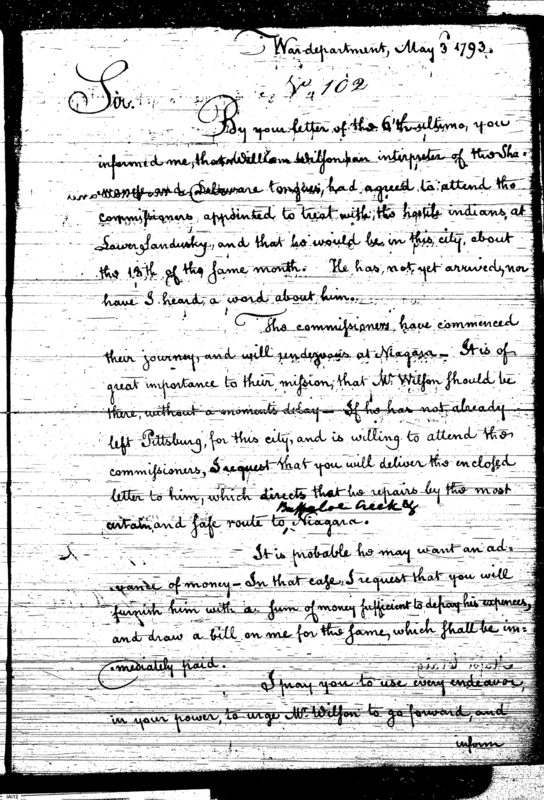 War department, May 3d 1793.
No 102
Sir.
By your letter of the 6th ultimo, you
informed me, that William Wilson an interpreter of the Sha=
wanese and Delaware tongues, had agreed to attend the
commissioners, appointed to treat with the hostile indians, at
Lower Sandusky, and that he would be in this city, about
the 13th of the same month. He has, not yet arrived, nor
have I heard, a word about him.
The commissioners, have commenced
their journey, and will rendezvous at Niagara — It is of
great importance to their mission, that Mr. Wilson should be
there, without a moments delay — If he has not already
left Pittsburg, for this city, and is willing to attend the
commissioners, I request that you will deliver the enclosed
letter to him, which directs that he repairs by the most
Buffaloe Creek &
certain, and safe route to Niagara.
It is probable he may want an ad=
vance of money — In that case, I request that you will
furnish him with a sum of money sufficient to defray his expences,
and draw a bill on me for the same, which shall be im=
mediately paid.
I pray you to use every endeavor,
in your power, to urge Mr. Wilson to go forward, and
inform